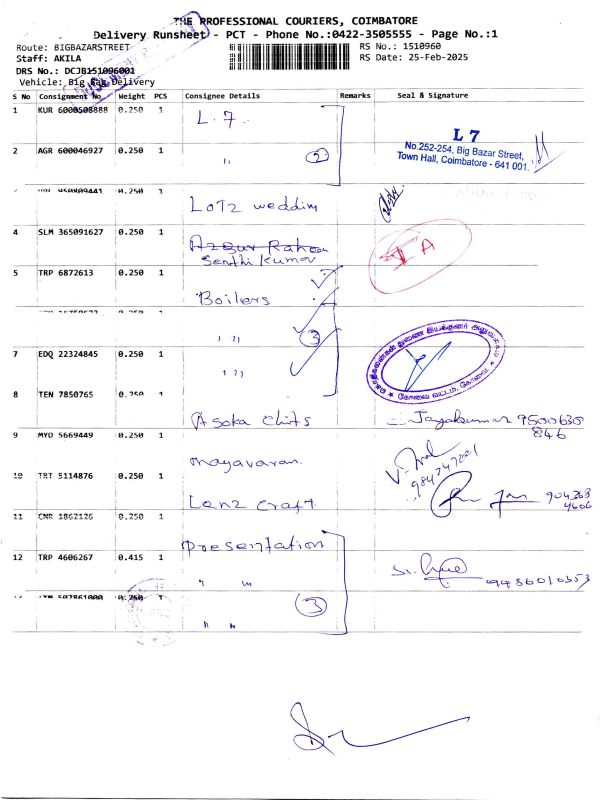 THE PROFESSIONAL COURIERS, COIMBATORE
Delivery Runsheet - PCT - Phone No.:0422-3505555 - Page No.:1
Route: BIGBAZARSTREET
RS No.: 1510960
Staff: AKILA
RS Date: 25-Feb-2025
DRS No.: DCJB151096001
Vehicle: Big Delivery
S No Consignment No Weight PCS Consignee Details Remarks Seal & Signature
1 KUR 6000508888 0.250 1 L. 7.
2 AGR 600046927 0.250 1 " 2
L 7
No.252-254, Big Bazar Street,
Town Hall, Coimbatore - 641 001.
950809441 0.250 1 LOTZ
4 SLM 365091627 0.250 1
Senthil Kumar
I A
5 TRP 6872613 0.250 1 Boilers
0.250 1 " "
3
7 EDQ 22324845 0.250 1 " "
கோவை வட்டம், கோவை
8 TEN 7850765 0.250 1 Asoka chits Jayakumar 9500630
846
9 MYD 5669449 0.250 1 mayavaran
10 TRT 5114876 0.250 1 Lanz craft
11 CNR 1862126 0.250 1 presentation
12 TRP 4606267 0.415 1 " "
507861000 0.250 1 " "
3